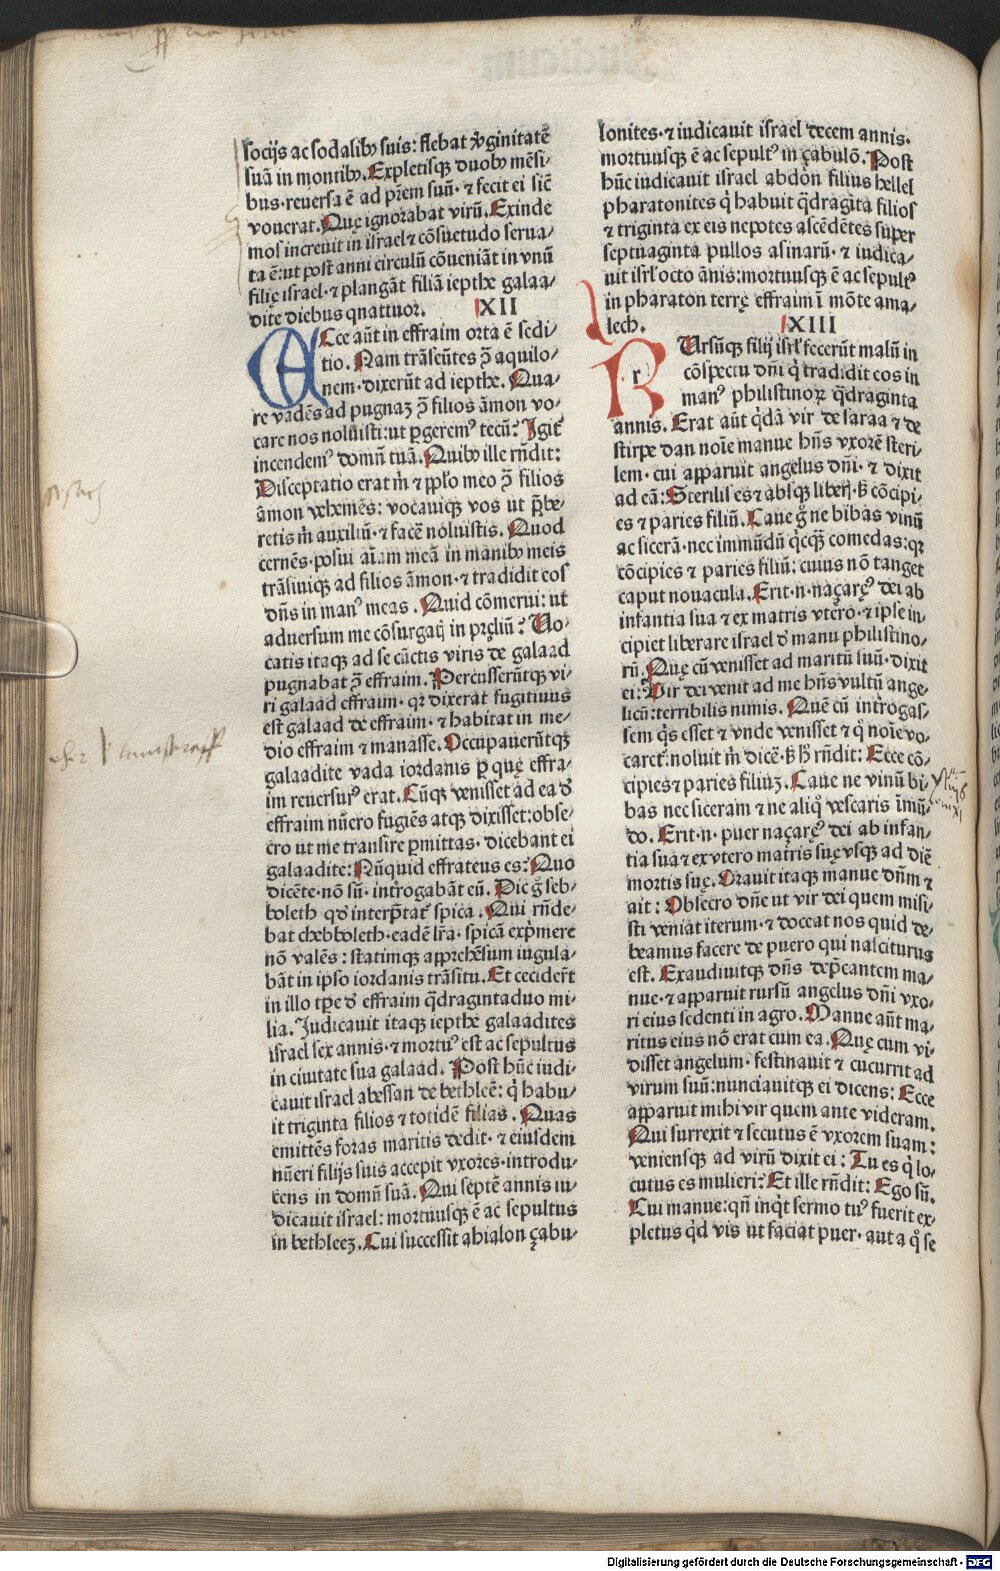 socijs ac sodalibꝫ suis: flebat v̾ginitatē
suā in montibꝫ. Expletisqꝫ duobꝫ mēsi⸗
bus· reuersa ē ad pr̄em suū· ⁊ fecit ei sic̄
vouerat. Quę ignorabat virū. Exinde
mos increuit in israel ⁊ cōsuetudo serua⸗
ta ē: ut post anni circulū cōueniāt in vnū
filię israel· ⁊ plangāt filiā iepthe galaa⸗
dite diebus quattuor. XII
Ecce aūt in effraim orta ē sedi⸗
tio. Nam trāseūtes ꝯ̄ aquilo⸗
nem· dixerūt ad iepthe. Qua⸗
re vadēs ad pugnaꝫ ꝯ̄ filios āmon vo⸗
care nos noluisti: ut ꝑgeremꝰ tecū: Igit̄
incendemꝰ domū tuā. Quibꝫ ille rn̄dit:
Disceptatio erat m̄ ⁊ pp̄lo meo ꝯ̄ filios
āmon vehemēs: vocauiqꝫ vos ut p̄be⸗
retis m̄ auxiliū· ⁊ facē noluistis. Quod
cernēs· posui aīam meā in manibꝫ meis
trāsiuiqꝫ ad filios āmon· ⁊ tradidit eos
dn̄s in manꝰ meas. Quid cōmerui: ut
aduersum me cōsurgatꝭ in pręliū: Uo⸗
catis itaqꝫ ad se cūctis viris de galaad
pugnabat ꝯ̄ effraim. Percusserūtqꝫ vi⸗
ri galaad effraim· qꝛ dixerat fugitiuus
est galaad de effraim· ⁊ habitat in me⸗
dio effraim ⁊ manasse. Occupauerūtqꝫ
galaadite vada iordanis ꝑ quę effra⸗
im reuersurꝰ erat. Cūqꝫ venisset ad ea d̾
effraim nūero fugiēs atqꝫ dixisset: obse⸗
cro ut me transire ꝑmittas· dicebant ei
galaadite: Nūquid effrateus es: Quo
dicēte· nō sū· introgabāt eū. Dic g̊ seb⸗
boleth qd̾ interp̄tat̄ spica. Qui rn̄de⸗
bat chebboleth· eadē lr̄a· spicā exp̄mere
nō valēs: statimqꝫ apprehēsum iugula⸗
bāt in ipso iordanis trāsitu. Et cecider̄t
in illo tp̄e d̾ effraim q̄dragintaduo mi⸗
lia. Judicauit itaqꝫ iepthe galaadites
israel sex annis· ⁊ mortuꝰ est ac sepultus
in ciuitate sua galaad. Post hūc iudi⸗
cauit israel abessan de bethleē: qͥ habu⸗
it triginta filios ⁊ totidē filias. Quas
emittēs foras maritis dedit· ⁊ eiusdem
nūeri filijs suis accepit vxores· introdu⸗
cens in domū suā. Qui septē annis iu⸗
dicauit israel: mortuusqꝫ ē ac sepultus
in bethleeꝫ. Cui successit ahialon çabu⸗
lonites· ⁊ iudicauit israel decem annis.
mortuusqꝫ ē ac sepultꝰ in çabulō. Post
hūc iudicauit israel abdon filius hellel
pharatonites qͥ habuit q̄dragita filios
⁊ triginta ex eis nepotes ascēdētes super
septuaginta pullos asinarū· ⁊ iudica⸗
uit isrl̄ octo ānis: mortuusqꝫ ē ac sepultꝰ
in pharaton terrę effraim ī mōte ama⸗
lech. XIII
r
RUrsūqꝫ filij isrl̄ fecerūt malū in
cōspectu dn̄i qͥ tradidit eos in
manꝰ philistinoꝝ q̄draginta
annis. Erat aūt qͥdā vir de saraa ⁊ de
stirpe dan noīe manue hn̄s vxorē steri⸗
lem· cui apparuit angelus dn̄i· ⁊ dixit
ad eā: Sterilis es ⁊ absqꝫ liberꝭ· sꝫ cōcipi⸗
es ⁊ paries filiū. Caue g̊ ne bibas vinū
ac sicerā· nec immūdū qͥcqꝫ̄ comedas: qꝛ
cōcipies ⁊ paries filiū: cuius nō tanget
caput nouacula. Erit·n·naçaręꝰ dei ab
infantia sua ⁊ ex matris vtero· ⁊ ipse in⸗
cipiet liberare israel d̾ manu philistino⸗
rū. Quę cū venisset ad maritū suū· dixit
ei: Uir dei venit ad me hn̄s vultū ange⸗
licū: terribilis nimis. Quē cū int̾rogas⸗
sem qͥs esset ⁊ vnde venisset ⁊ qͦ noīe vo⸗
caret̄: noluit m̄ dicē· sꝫ h̾ rn̄dit: Ecce cō⸗
cipies ⁊ paries filiuꝫ. Caue ne vinū bi⸗
bas nec siceram ⁊ ne aliqͦ vescaris īmū⸗
do. Erit·n· puer naçaręꝰ dei ab infan⸗
tia sua ⁊ ex vtero matris suę vsqꝫ ad diē
mortis suę. Orauit itaqꝫ manue dn̄m ⁊
ait: Obsecro dn̄e ut vir dei quem misi⸗
sti veniat iterum· ⁊ doceat nos quid de⸗
beamus facere de puero qui nasciturus
est. Exaudiuitqꝫ dn̄s dep̄cantem ma⸗
nue· ⁊ apparuit rursū angelus dn̄i vxo⸗
ri eius sedenti in agro. Manue aūt ma⸗
ritus eius nō erat cum ea. Quę cum vi⸗
disset angelum· festinauit ⁊ cucurrit ad
virum suū: nunciauitqꝫ ei dicens: Ecce
apparuit mihi vir quem ante videram.
Qui surrexit ⁊ secutus ē vxorem suam:
veniensqꝫ ad virū dixit ei: Tu es qͥ lo⸗
cutus es mulieri: Et ille rn̄dit: Ego sū.
Cui manue: qn̄ inqͥt sermo tuꝰ fuerit ex⸗
pletus qͥd vis ut faciat puer· aut a qͦ se
Digitalisierung gefördert durch die Deutsche Forschungsgemeinschaft - DFG